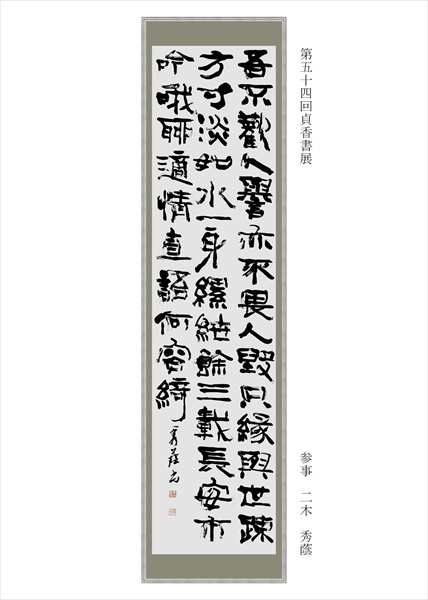 第五十四回貞香書展
吾不歡人譽亦不畏人毀只緣與世疎
方寸淡如水一身縲絏餘三載長安市
吟哦聊適情直語何容綺
秀蔭書
参事 二木 秀蔭